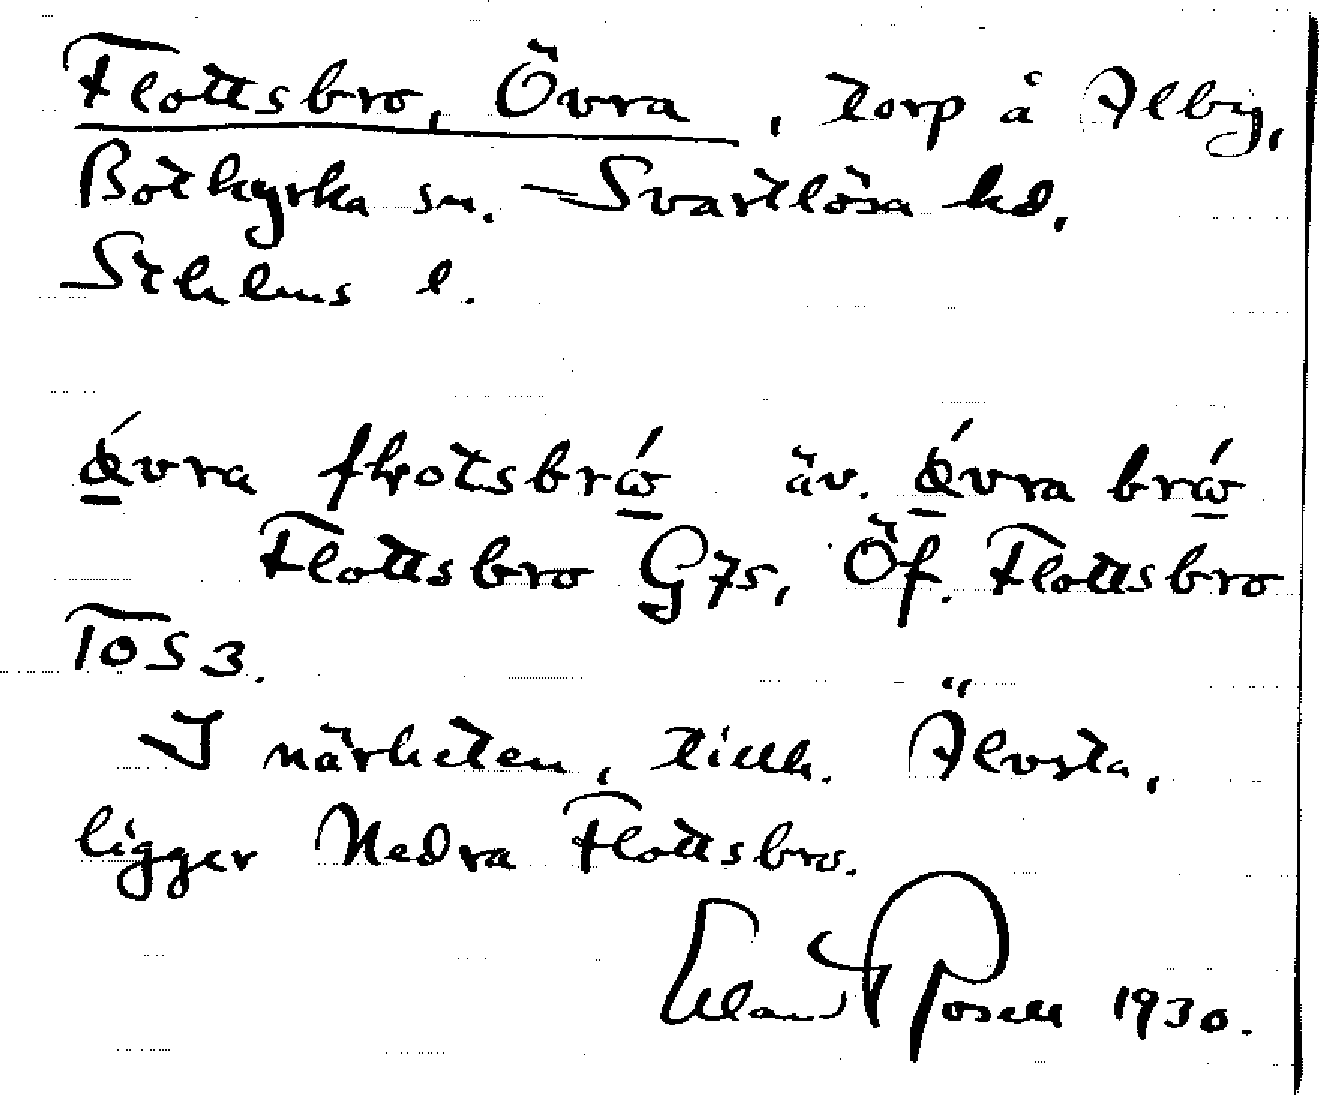 Flottsbro, Övra, torp å Alby,
Botkyrka sn. Svartlösa hd.
Sthlms l.
ǿvra fḷotsbrώ äv. ǿvra brώ
Flottsbro G75, Öf. Flottsbro
TOS3.
I närheten, tillh. Älvsta,
ligger Nedra Flottsbro.
Rosell 1930.